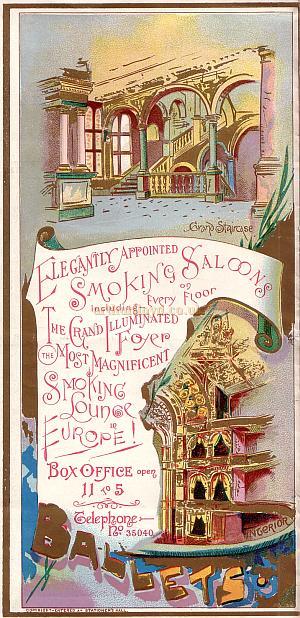 Grand Staircase
Elegantly Appointed
Smoking Saloons
on Every Floor
including
The Grand Illuminated
Foyer
The Most Magnificent
Smoking
Lounge
in
Europe!
Box Office open
11 to 5
Telephone:-
No. 35040.
Interior
Ballets.
COPYRIGHT-ENTERED AT STATIONER'S HALL.